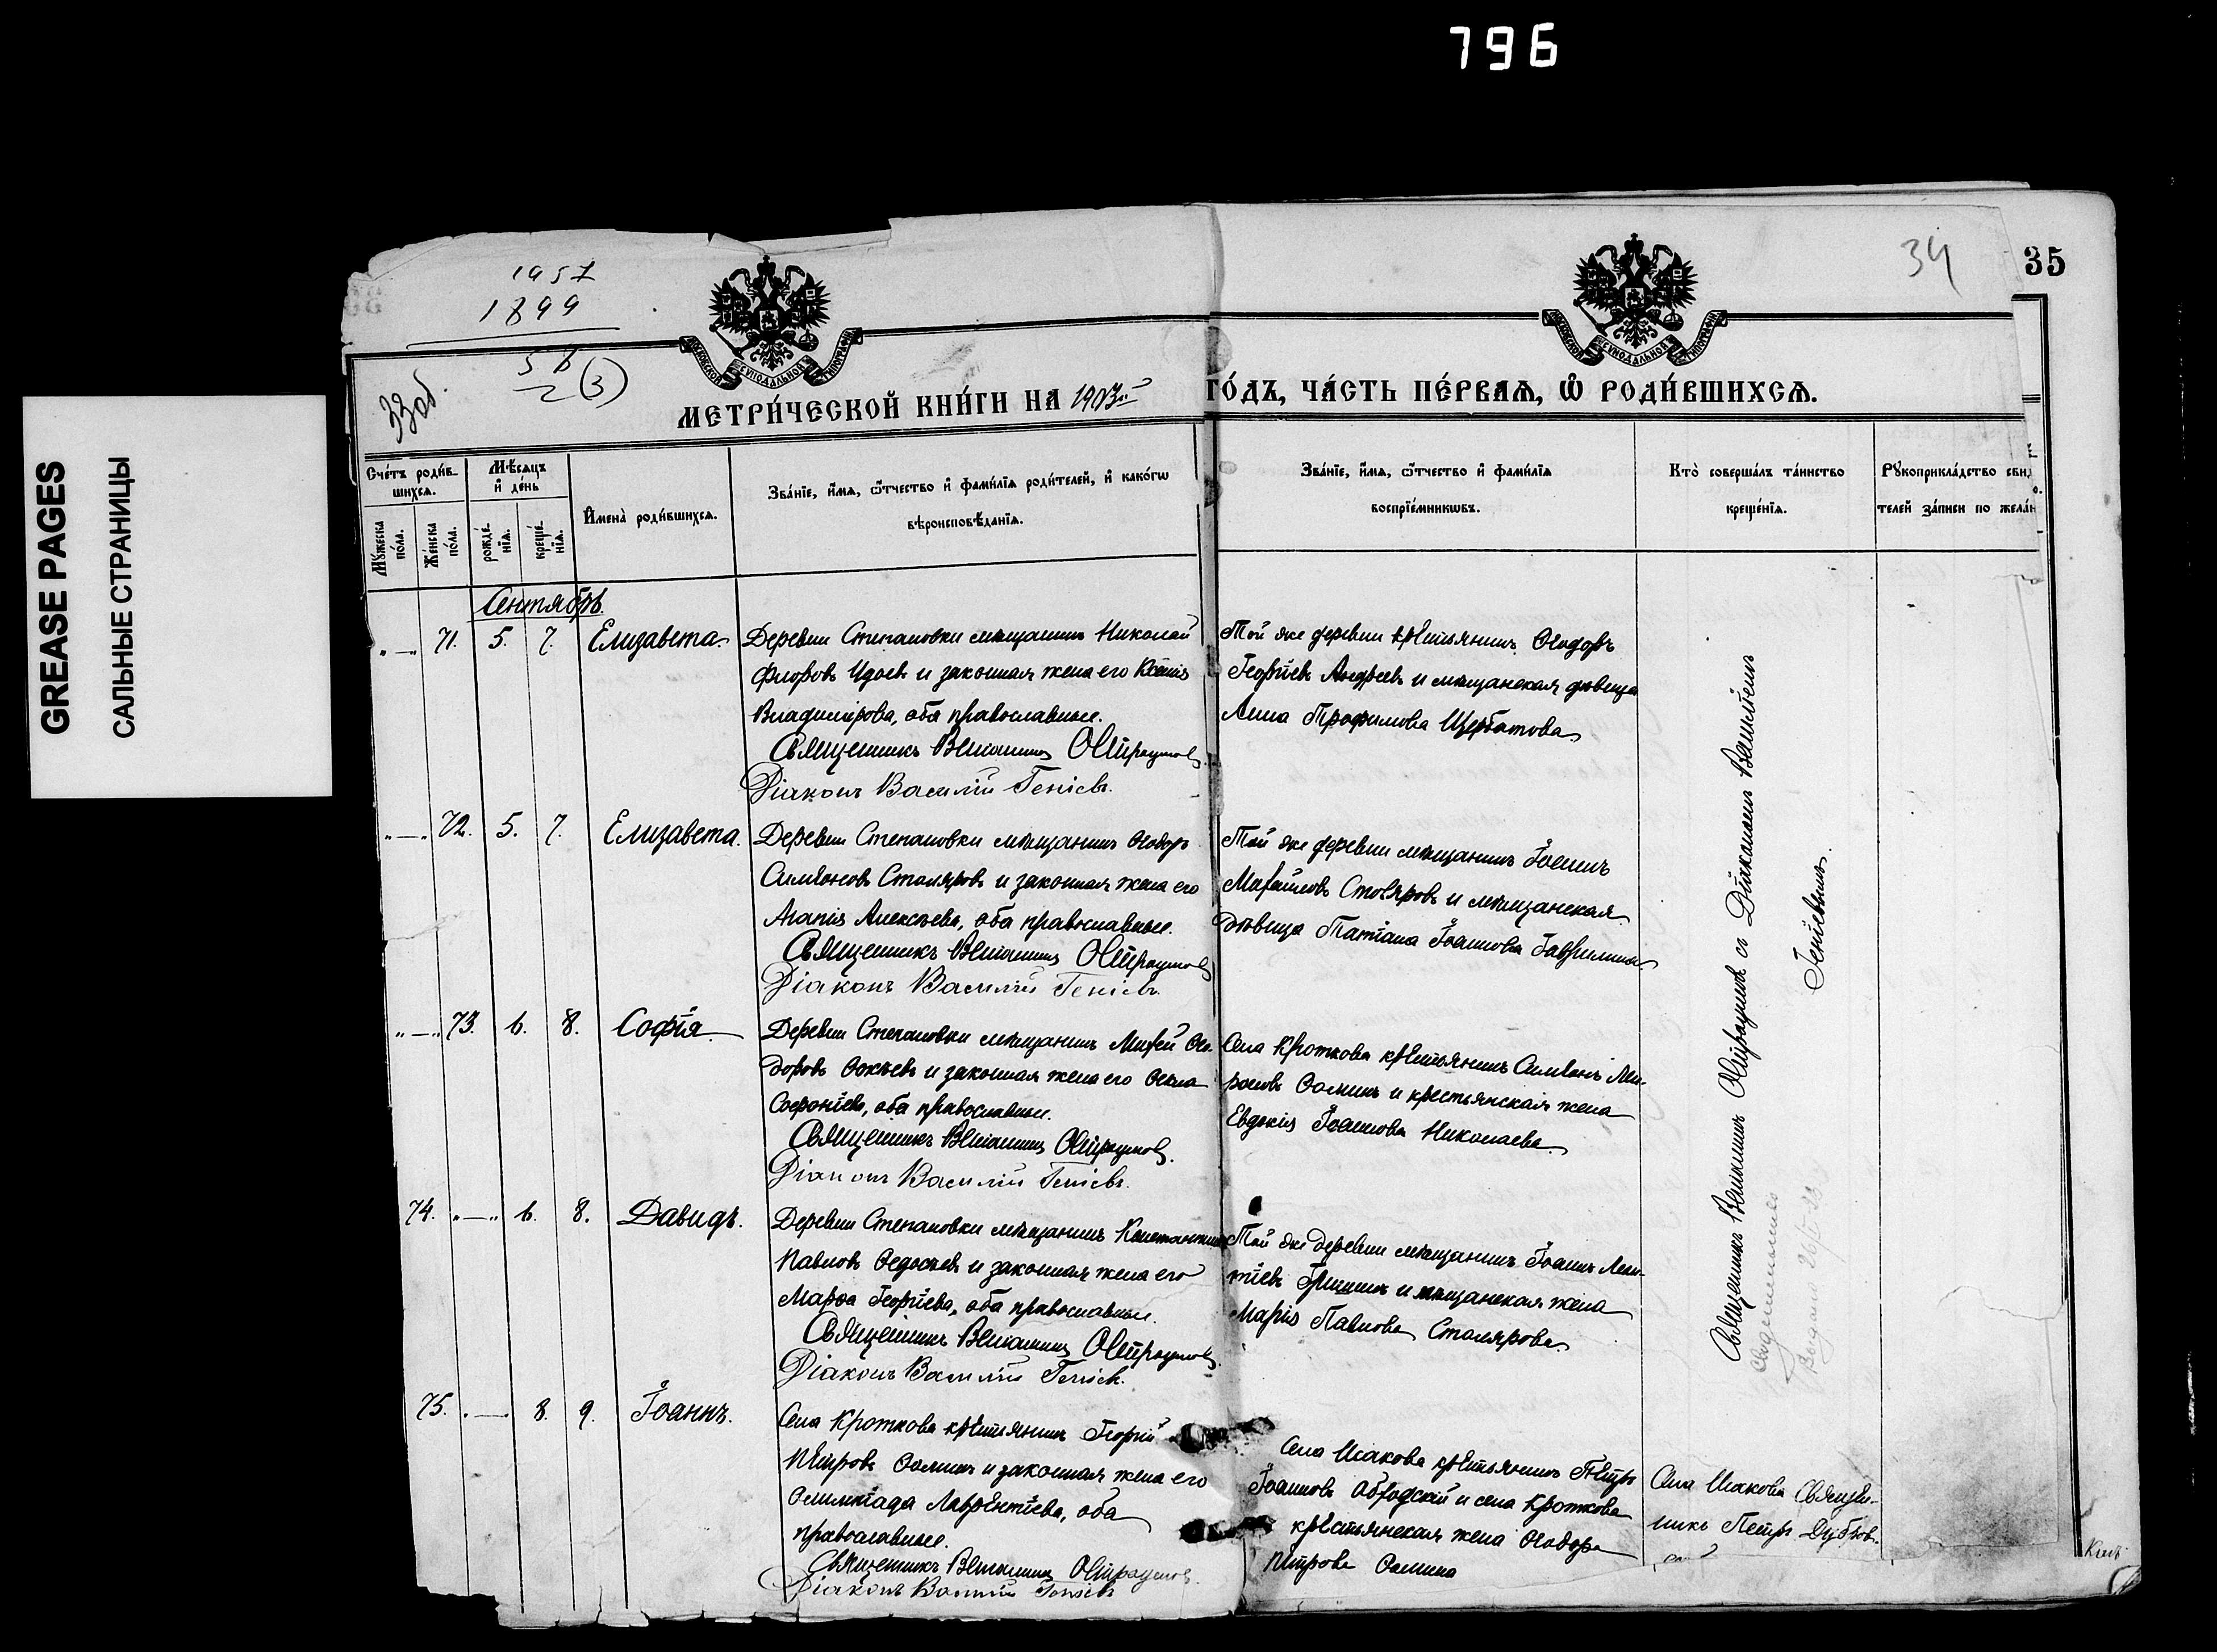 796
GREASE PAGES
САЛЬНЫЕ СТРАНИЦЫ
1957
1899
33об.
34
35
МЕТРИ́ЧЕСКОЙ КНИ́ГИ НА 1903й ГО́ДЪ, ЧА́СТЬ ПЕ́РВАѦ, Ѡ҆ РОДИ́ВШИХСѦ.
Сче́тъ роди́в-
шихсѧ.
Мꙋ́жеска по́ла.
Же́нска по́ла.
Мѣ́сѧцъ и҆ де́нь
рожде́-нїѧ.
креще́-нїѧ.
И҆мена̀ роди́вшихсѧ.
Зва́нїе, и҆́мѧ, ѻ҆́тчество и҆ фами́лїѧ роди́телей, и҆ како́гѡ
вѣроисповѣ́данїѧ.
Зва́нїе, и҆́мѧ, ѻ҆́тчество и҆ фами́лїѧ
воспрїе́мникѡвъ.
Кто̀ соверша́лъ та́инство
креще́нїѧ.
Рꙋкоприкла́дство свид
телей за́писи по жела́н
Сентябрь.
71. 5. 7. Елизавета.
Деревни Степановки мѣщанинъ Николай
Флоровъ и законная жена его Ксенія
Владимірова, оба православные.
Священникъ Веніаминъ
Діаконъ Василій Геніевъ.
Той же деревни крестьянинъ Ѳеодоръ
Георгіевъ Андреевъ и мѣщанская дѣвица
Анна Трофимова Щербатова
72. 5. 7. Елизавета.
Деревни Степановки мѣщанинъ Ѳеодоръ
Симеоновъ Столяровъ и законная жена его
Агапія Алексѣева, оба православные.
Священникъ Веніаминъ
Діаконъ Василій Геніевъ.
Той же деревни мѣщанинъ Іоаннъ
Михайловъ Столяровъ и мѣщанская
дѣвица Татіана Іоаннова Гаврилина
73. 6. 8. Софія.
Деревни Степановки мѣщанинъ Михей Ѳео-
доровъ Ѳокѣевъ и законная жена его Ѳекла
Софроніева, оба православные.
Священникъ Веніаминъ
Діаконъ Василій Геніевъ.
Села Кроткова крестьянинъ Симеонъ Ми-
роновъ Ѳоминъ и крестьянская жена
Евдокія Іоаннова Николаева
74. 6. 8. Давидъ.
Деревни Степановки мѣщанинъ Константинъ
Павловъ Ѳедосѣевъ и законная жена его
Марѳа Георгіева, оба православные.
Священникъ Веніаминъ
Діаконъ Василій Геніевъ.
Той же деревни мѣщанинъ Іоаннъ Леон-
тіевъ Гришинъ и мѣщанская жена
Марія Павлова Столярова
75. 8. 9. Іоаннъ.
Села Кроткова крестьянинъ Георгій
Петровъ Ѳоминъ и законная жена его
Олимпіада Лаврентіева, оба
православные.
Священникъ Веніаминъ
Діаконъ Василій Геніевъ
Села Исакова крестьянинъ Петръ
Іоанновъ и села Кроткова
крестьянская жена Ѳеодора
Петрова Ѳомина
Священникъ Веніаминъ съ Діакономъ Василіемъ
Геніевымъ.
Села Исакова Священ-
никъ Петръ Дубров-